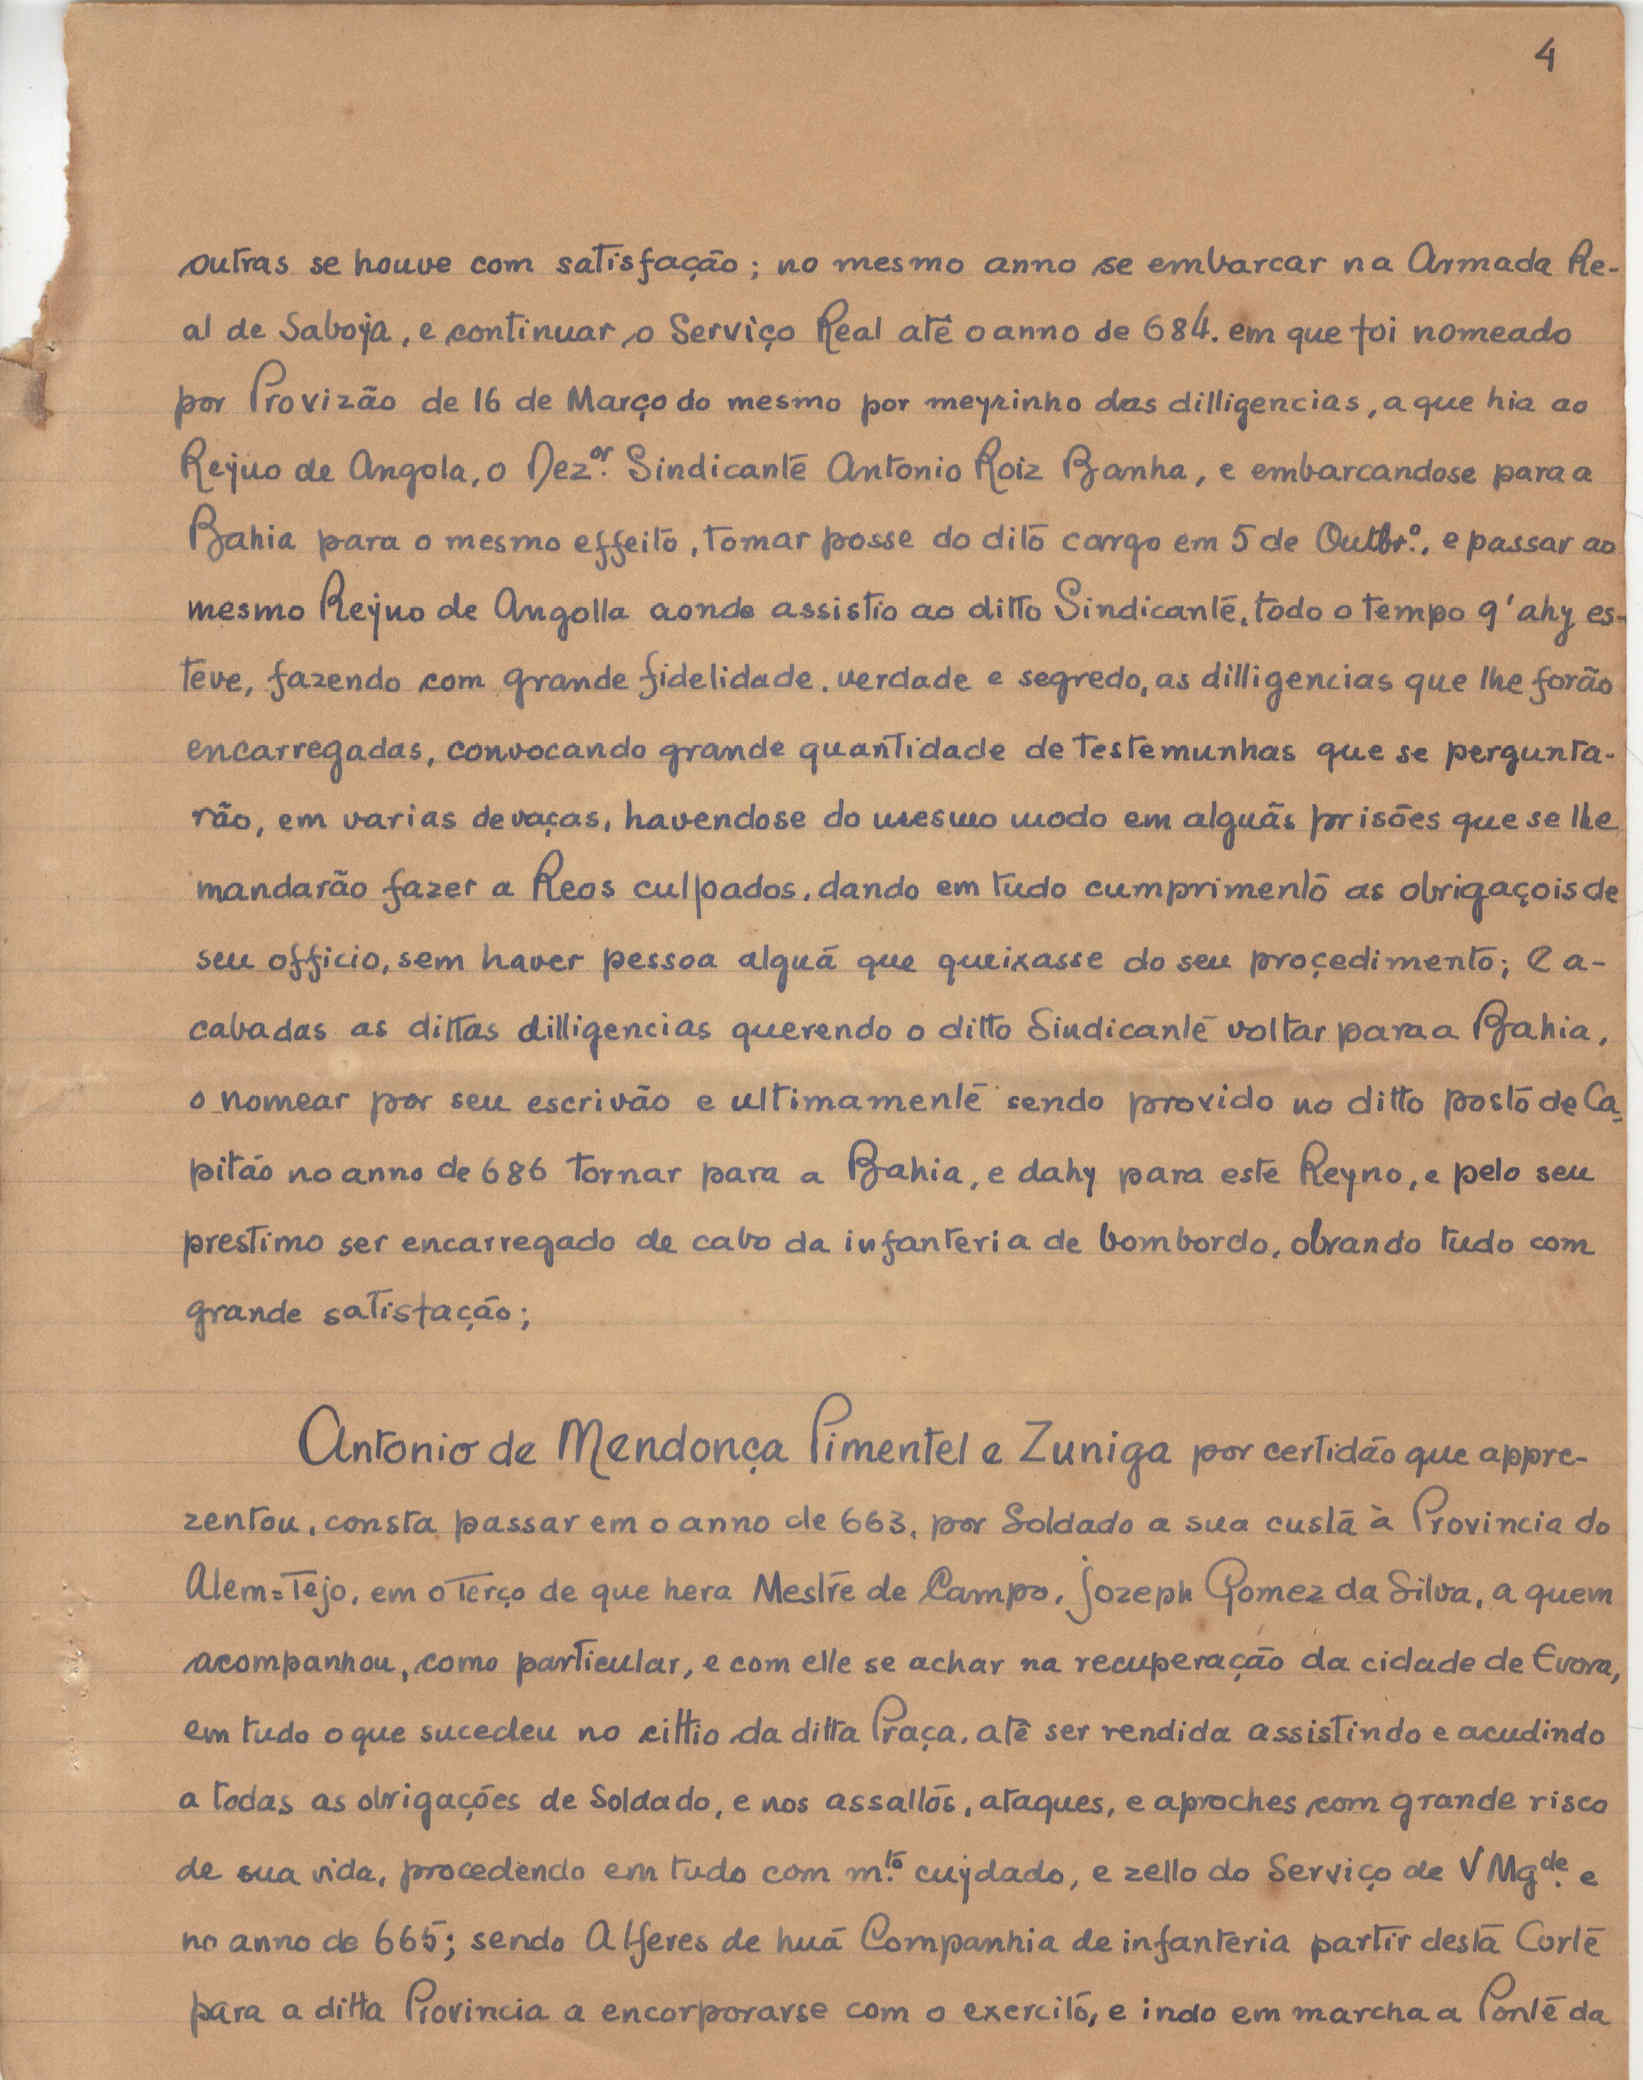 4
outras se houve com satisfação; no mesmo anno se embarcar na Armada Re-
al de Saboÿa, e continuar o Serviço Real até o anno de 684. em que foi nomeado
por Provizão de 16 de Março do mesmo por meyrinho das dilligencias, a que hia ao
Reÿno de Angola, o Dez.or Sindicante Antonio Roiz Banha, e embarcandose para a
Bahia para o mesmo effeito, tomar posse do dito cargo em 5 de Outbr.º, e passar ao
mesmo Reÿno de Angolla aonde assistio ao ditto Sindicante, todo o tempo q' ahy es-
teve, fazendo com grande fidelidade, verdade e segredo, as dilligencias que lhe forão
encarregadas, convocando grande quantidade de testemunhas que se pergunta-
rão, em varias devaças, havendose do mesmo modo em alguãs prisões que se lhe
mandarão fazer a Reos culpados, dando em tudo cumprimento as obrigaçois de
seu officio, sem haver pessoa alguã que queixasse do seu proçedimento; e a-
cabadas as dittas dilligencias querendo o ditto Sindicante voltar para a Bahia,
o nomear por seu escrivão e ultimamente sendo provido no ditto posto de Ca-
pitão no anno de 686 tornar para a Bahia, e dahy para este Reyno, e pelo seu
prestimo ser encarregado de cabo da infanteria de bombordo, obrando tudo com
grande satisfação;
Antonio de Mendonça Pimentel e Zuniga por certidão que appre-
zentou, consta passar em o anno de 663, por Soldado a sua custa à Provincia do
Alem=Tejo, em o Terço de que hera Mestre de Campo, Jozeph Gomez da Silva, a quem
acompanhou, como particular, e com elle se achar na recuperação da cidade de Evora,
em tudo o que sucedeu no cittio da ditta Praça, até ser rendida assistindo e acudindo
a todas as obrigações de Soldado, e nos assaltos, ataques, e aproches com grande risco
de sua vida, procedendo em tudo com m.to cuÿdado, e zello do Serviço de V Mg.de e
no anno de 665; sendo Alferes de huã Companhia de infanteria partir desta Corte
para a ditta Provincia a encorporarse com o exercito, e indo em marcha a Ponte da